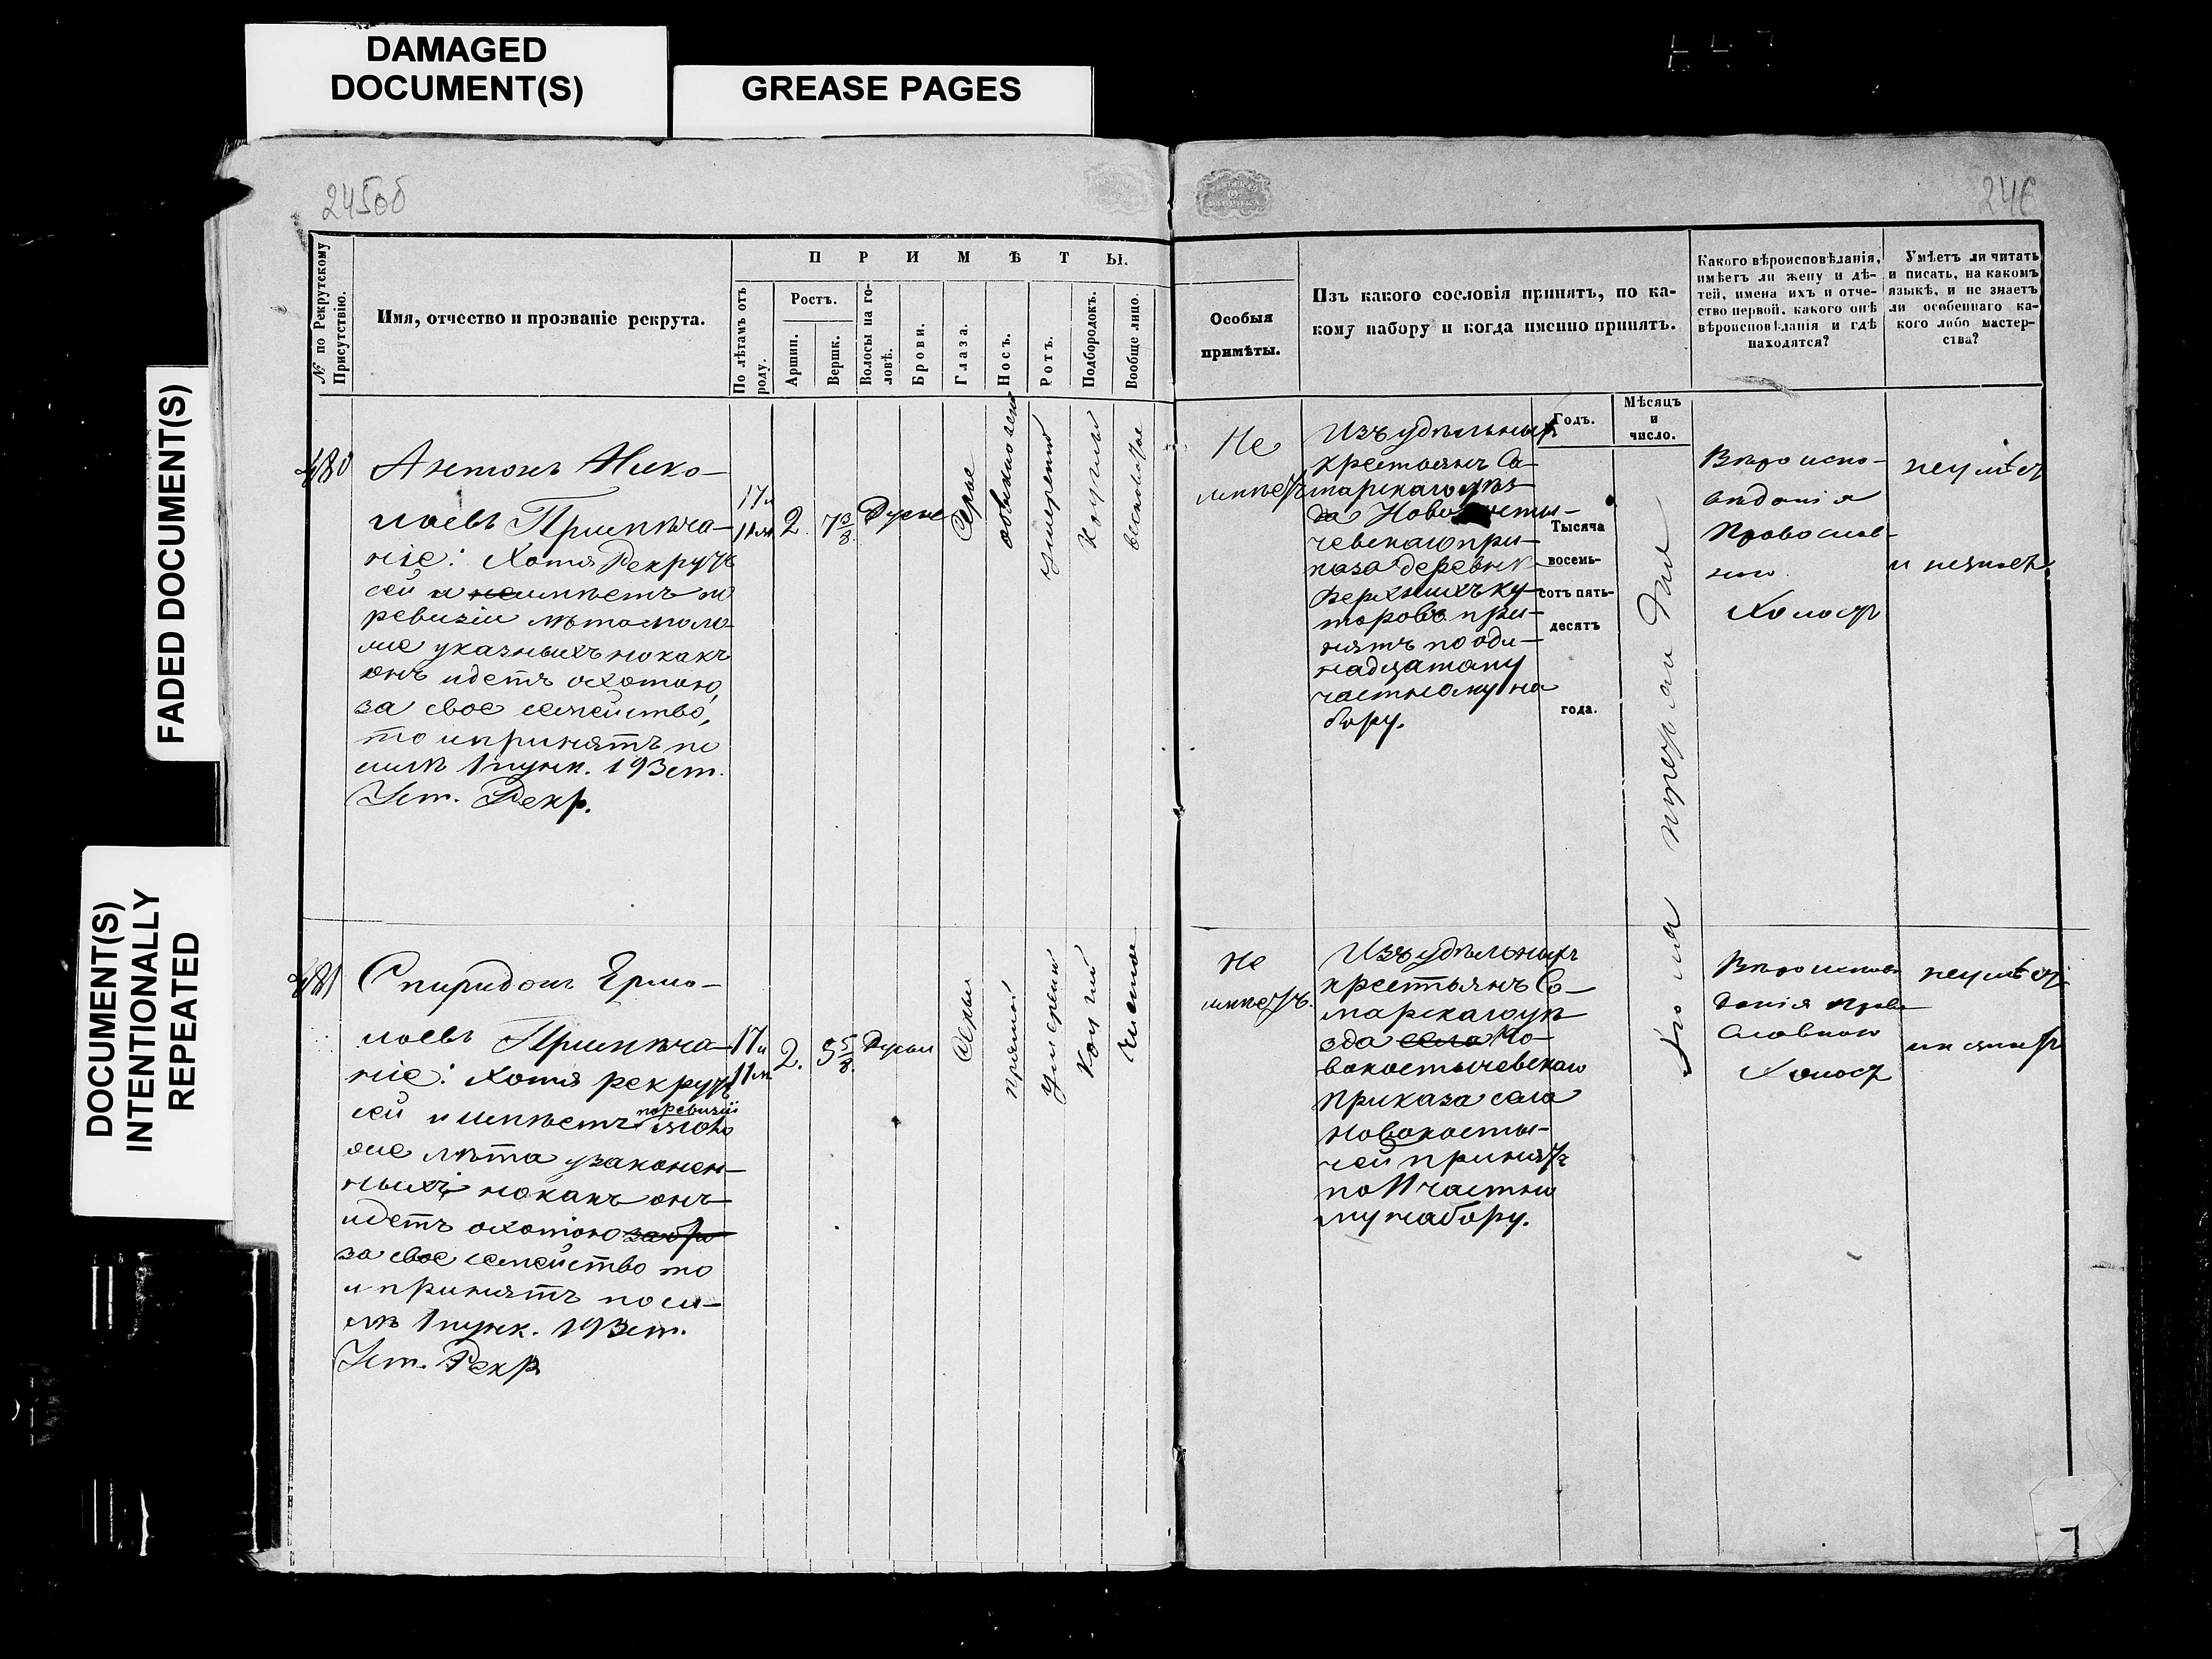 DAMAGED
DOCUMENT(S)
GREASE PAGES
FADED DOCUMENT(S)
DOCUMENT(S)
INTENTIONALLY
REPEATED
245об
246
№ по Рекрутскому
Присутствію.
Имя, отчество и прозваніе рекрута.
ПРИМѢТЫ.
По лѣтамъ отъ
роду.
Ростъ.
Аршин.
Вершк.
Волосы на го-
ловѣ.
Брови.
Глаза.
Носъ.
Ротъ.
Подбородокъ.
Вообще лицо.
Особыя
примѣты.
Изъ какого сословія принятъ, по ка-
кому набору и когда именно принятъ.
Какого вѣроисповѣданія,
имѣетъ ли жену и дѣ-
тей, имена ихъ и отче-
ство первой, какого онѣ
вѣроисповѣданія и гдѣ
находятся?
Умѣетъ ли читать
и писать, на какомъ
языкѣ, и не знаетъ
ли особеннаго ка-
кого либо мастер-
ства?
Годъ.
Мѣсяцъ
и
число.
480
Антонъ Нико-
лаевъ Примѣча-
ніе: Хотя Рекрутъ
сей и не имѣетъ по
ревизіи лѣта моло
же указныхъ но какъ
онъ идетъ охотою,
за свое семейство,
то и принятъ по
силѣ 1 пунк. 193 ст.
Уст. Рекр.
17 и
11 м
2.
7 3/8
Русые
Серые
обыкновен
Умеренный
Круглый
Не
имеетъ
Изъ удѣльныхъ
крестьянъ Са-
марскаго уѣз-
да Новокосты-
чевскаго при-
каза деревни
Верхнихъ ку-
торовъ при-
нятъ по оди-
надцатому
частному на
бору.
Тысяча
восемь-
сотъ пять-
десятъ
года.
Вѣроиспо-
веданія
Православ-
наго
Холостъ
неумѣетъ
и незнаетъ
481
Спиридонъ Ермо-
лаевъ Примѣча-
ніе: Хотя рекрутъ
сей и имѣетъ по ревизіи моло
же лѣта узаконен-
ныхъ но какъ онъ
идетъ охотою
за свое семейство то
и принятъ по си-
лѣ 1 пунк. 193 ст.
Уст. Рекр
17 и
11 м
2.
5 5/8
Русыи
Серыи
прямой
Умереный
Круглый
Чистое
Не
имѣетъ.
Изъ удѣльныхъ
крестьянъ Са-
марскаго уѣ
зда село Но-
вокостычевскаго
приказа села
Новокосты-
чей принятъ
по 11 частно
му набору.
Вѣроисповѣ
данія Право
славного
Холостъ
неумѣетъ
и незнаетъ